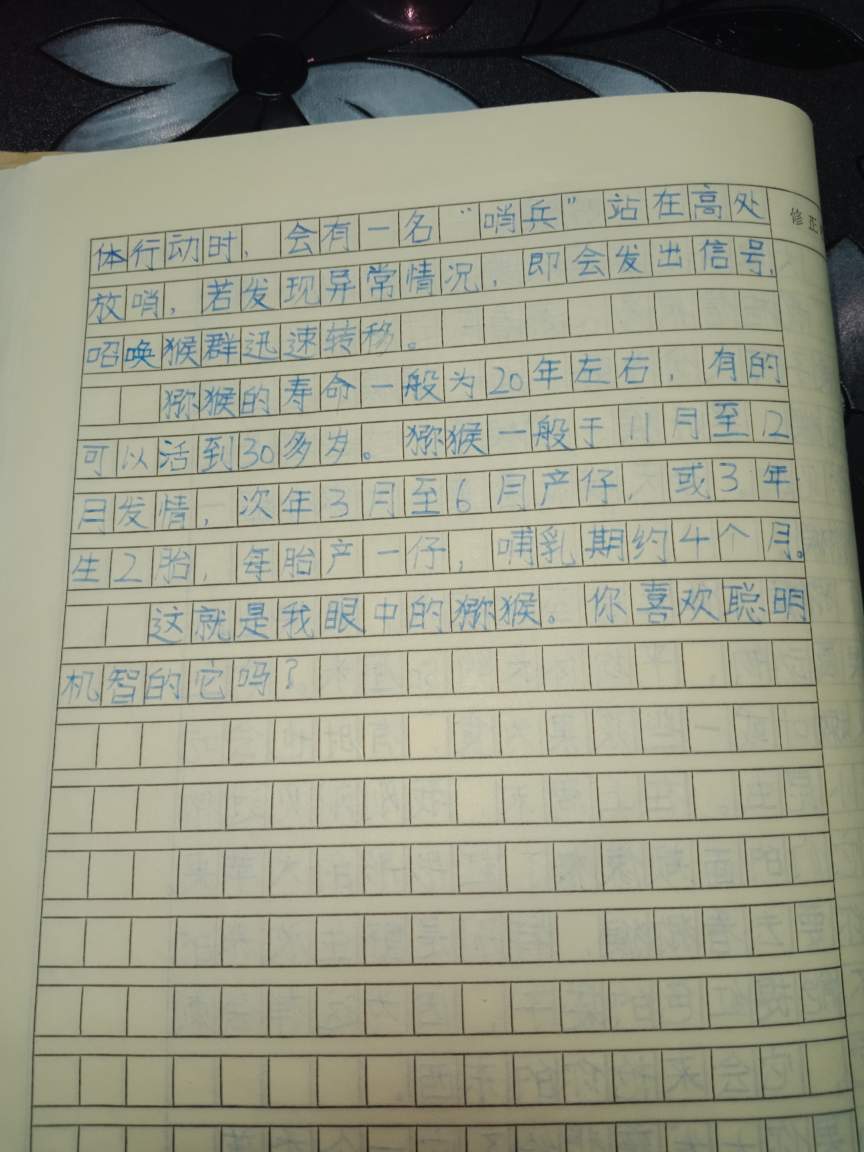 修正
体行动时，会有一名“哨兵”站在高处
放哨，若发现异常情况，即会发出信号，
召唤猴群迅速转移。
猕猴的寿命一般为20年左右，有的
可以活到30多岁。猕猴一般于11月至12
月发情，次年3月至6月产仔，或3年
生2胎，每胎产一仔，哺乳期约4个月。
这就是我眼中的猕猴。你喜欢聪明
机智的它吗？